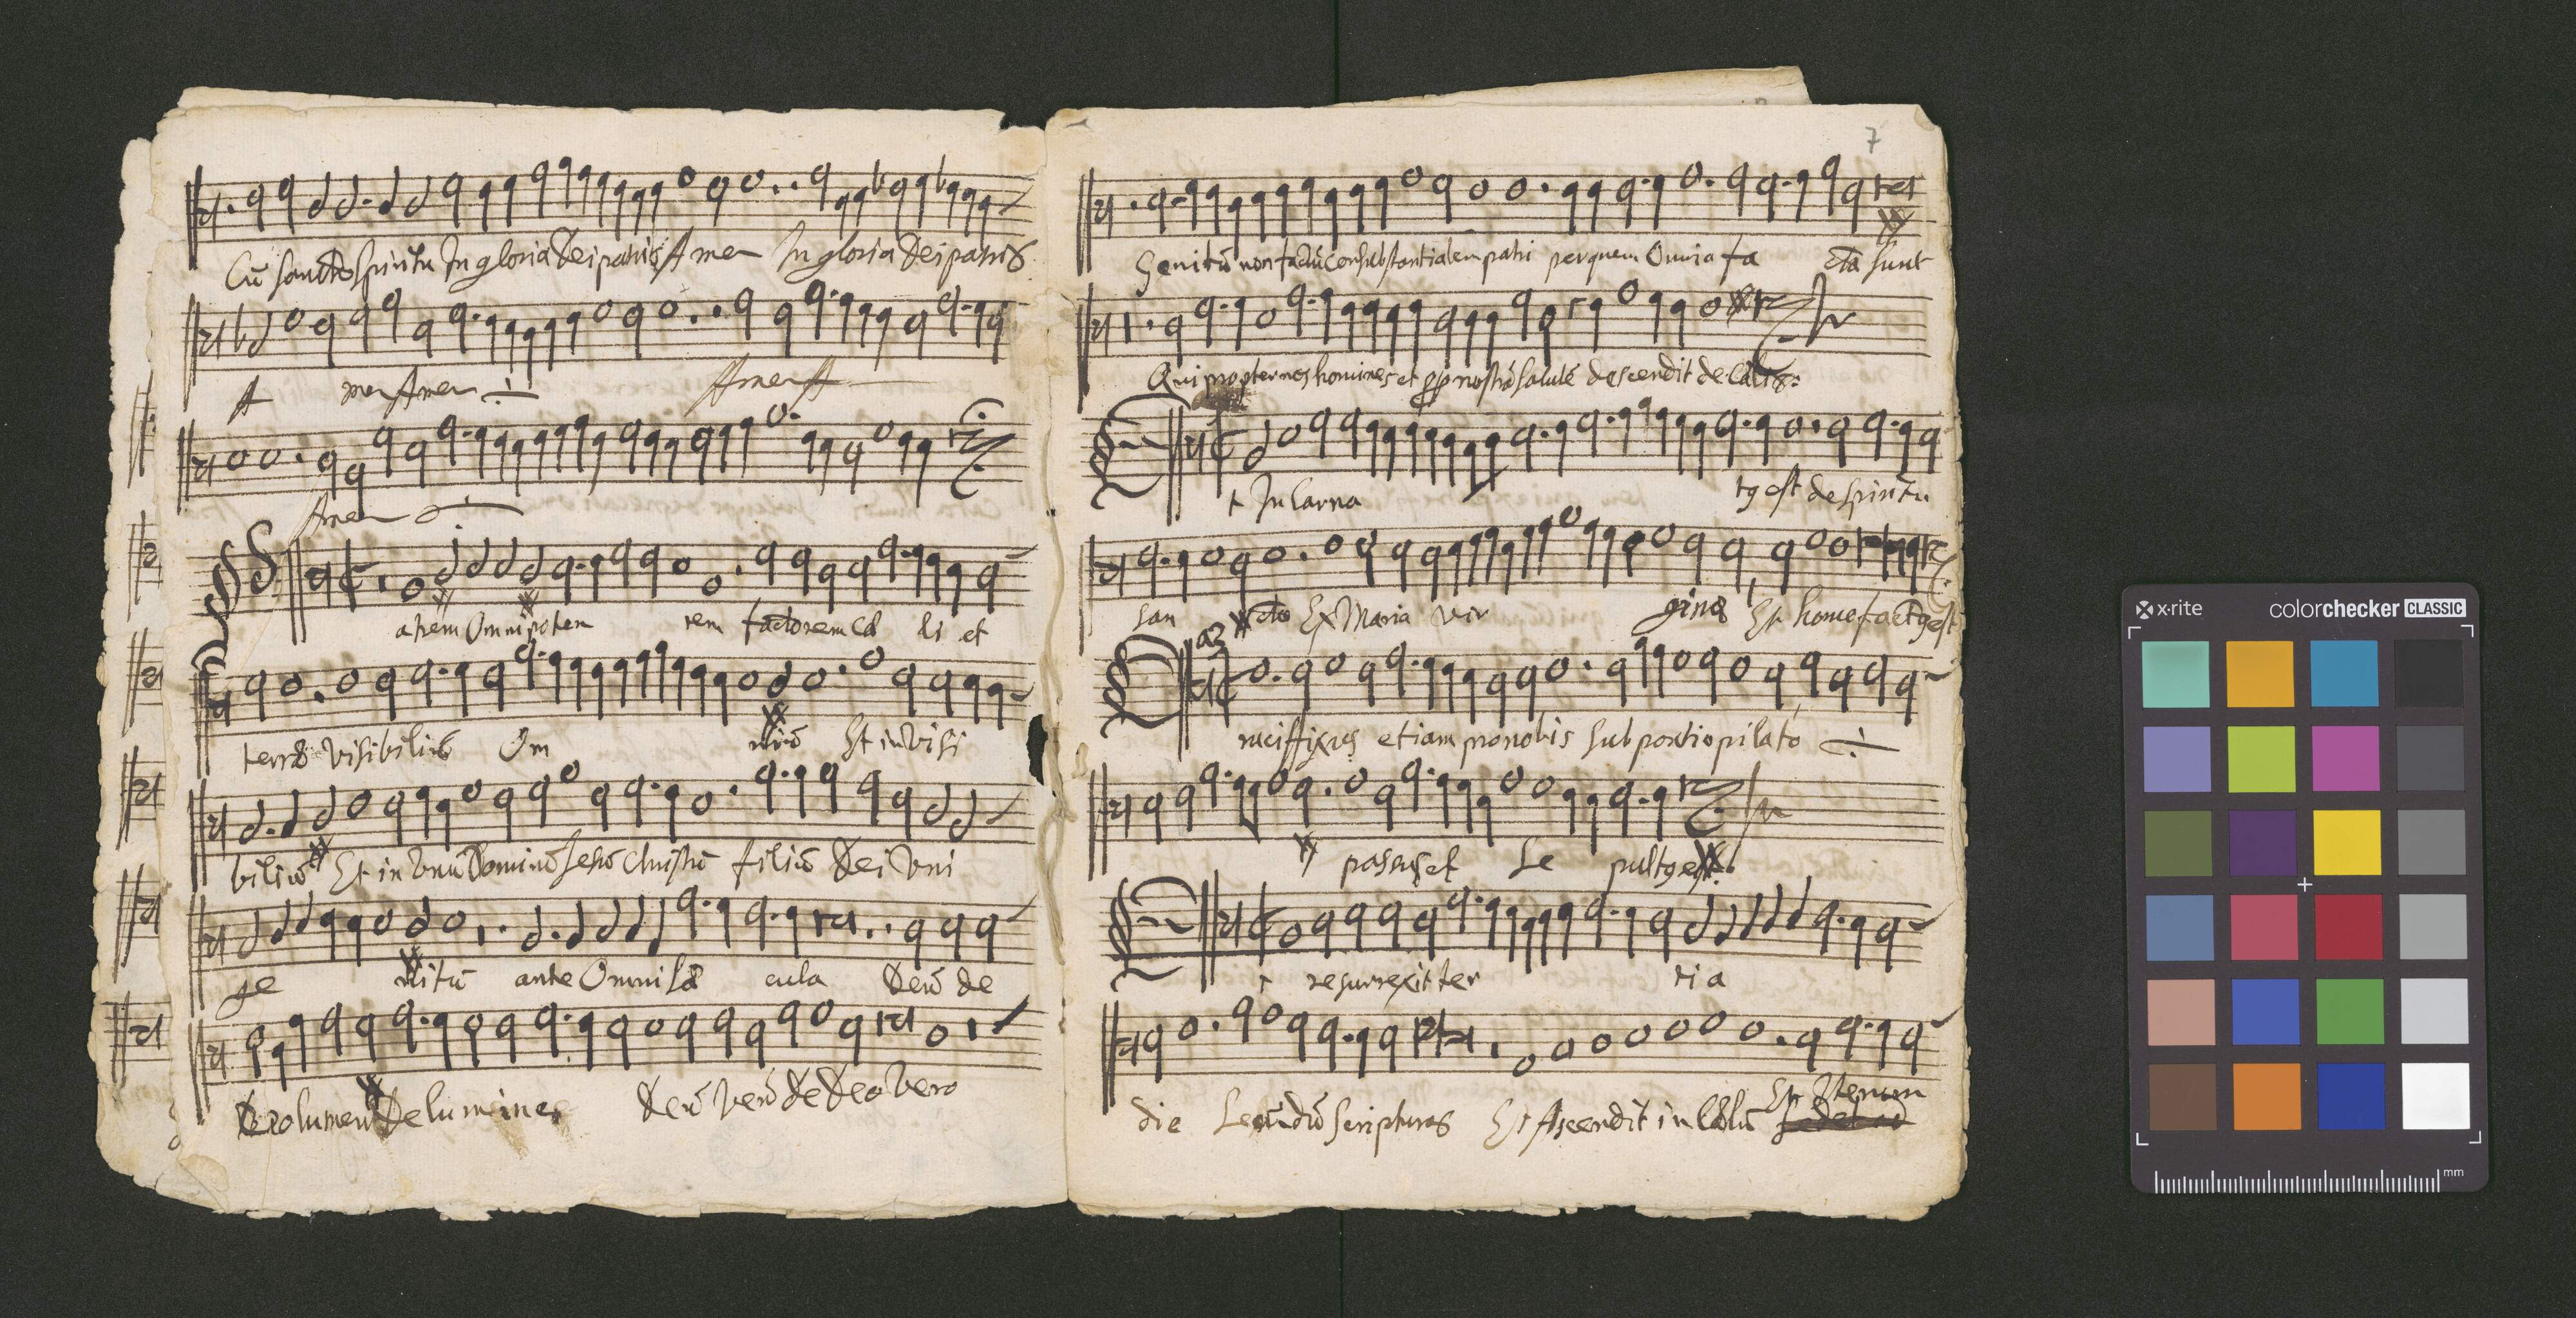 Cū sancto spiritu In gloria Dei patris Amen In gloria Dei patris
A men Amen Amen A
Amen
atrem Omnipoten tem factorem cæ li et
terræ visibiliū Om niū Et in visi
biliū Et in Vnū Dominū Jesū Christū filiū Dei Vni
ge nitū ante Omni sæ cula Deū de
Deo lumen De lumine Deū Verū de Deo Vero
7
Genitū non factū consubstantialem patri per quem Omnia fa cta sunt
Qui propter nos homines et pp nostrā salutē descendit de Cælis:
t Incarna tus est de spiritu
san cto Ex Maria Vir gine Et homo factus est
a3
rucifixus etiam pro nobis sub pontio pilato
passus et Se pultus est.
t resurrexit ter ti a
die Secundū scripturas Et Ascendit in Cælū Et Iterum
x-rite colorchecker CLASSIC
mm